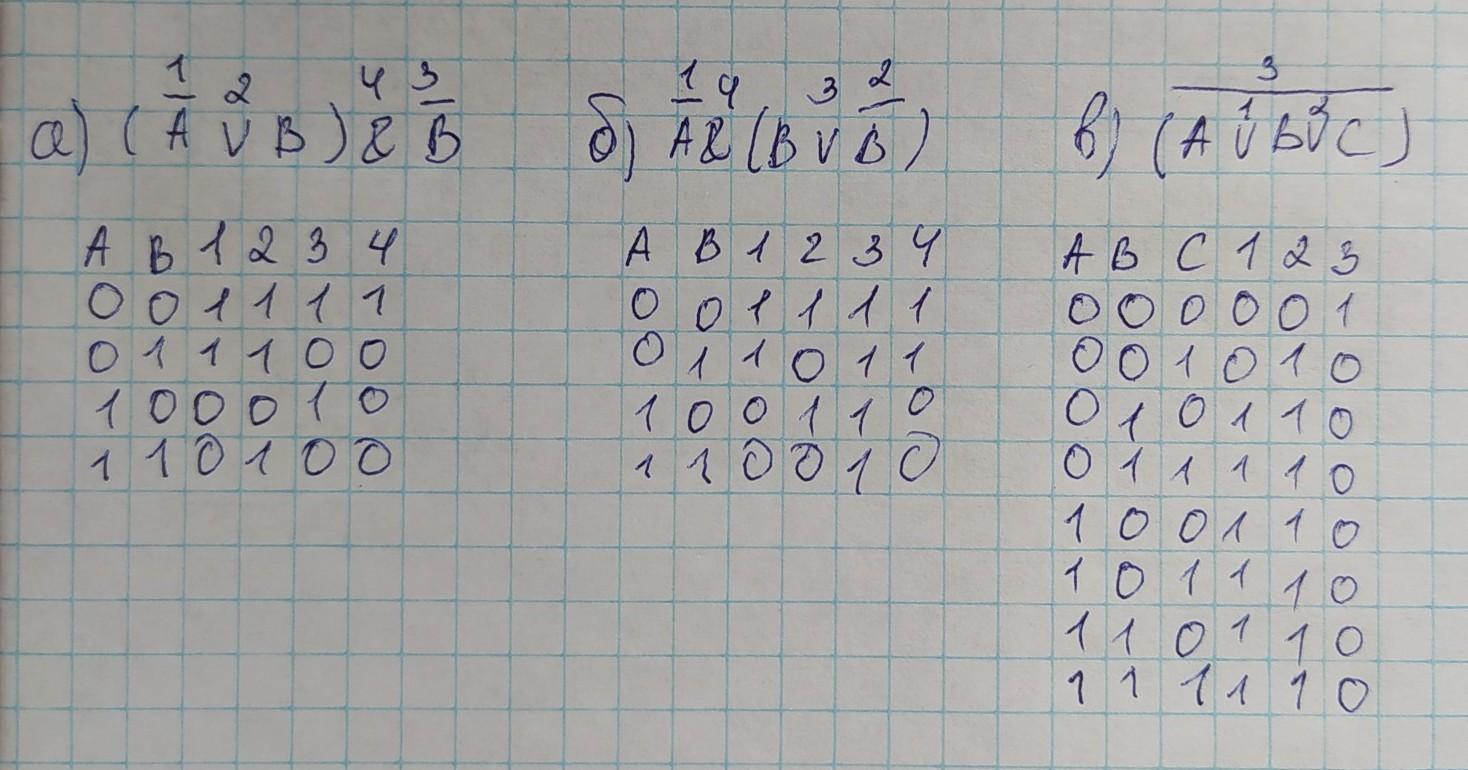 1 2 4 3 1 4 3 2 3
а) (A̅ ∨ B) & B̅ б) A̅ & (B ∨ B̅) в) (A ∨ B ∨ C) 1 2
A B 1 2 3 4 A B 1 2 3 4 A B C 1 2 3
0 0 1 1 1 1 0 0 1 1 1 1 0 0 0 0 0 1
0 1 1 1 0 0 0 1 1 0 1 1 0 0 1 0 1 0
1 0 0 0 1 0 1 0 0 1 1 0 0 1 0 1 1 0
1 1 0 1 0 0 1 1 0 0 1 0 0 1 1 1 1 0
1 0 0 1 1 0
1 0 1 1 1 0
1 1 0 1 1 0
1 1 1 1 1 0